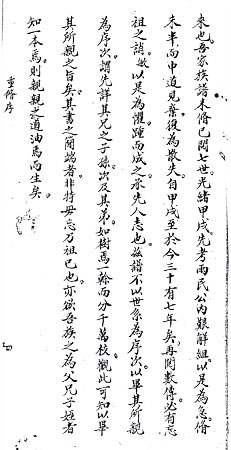 來也吾家族譜未脩已閱七世光緒甲戌先考雨民公內艱解組以是為急脩
未半而中道見棄復為散失自甲戌至於今三十有七年矣再閱數傳必有忘
祖之誚敏以是為懼踵而成之承先人志也茲譜不以世系為序次以畢其所親
為序次謂先詳其兄之子孫次及其弟如樹焉一榦而分千萬枝觀此可知以畢
其所親之旨矣其書之簡端者非特毋忘乃祖已也亦欲吾族之為父兄子姪者
知一本焉則親親之道油焉而生矣
重脩序